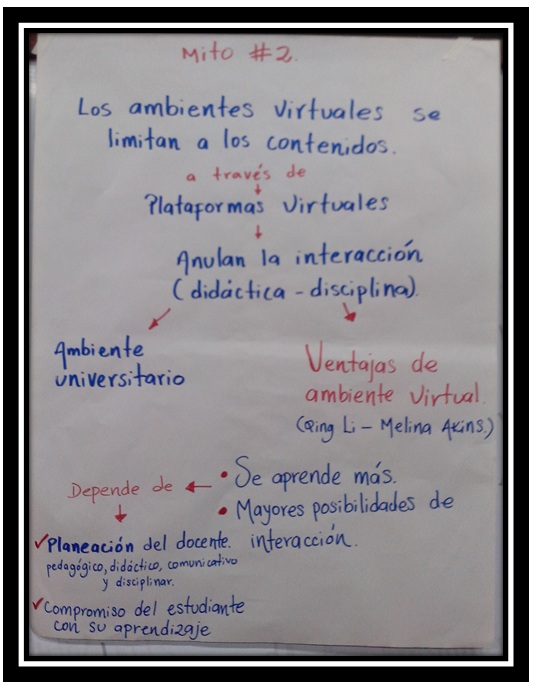 Mito #2.
Los ambientes virtuales se
limitan a los contenidos.
a través de
Plataformas virtuales
Anulan la interacción
(didáctica - disciplina).
Ambiente
universitario
Ventajas de
ambiente virtual.
(Qing Li - Melina Akins.)
• Se aprende más.
• Mayores posibilidades de
interacción.
Depende de
✓Planeación del docente.
pedagógico, didáctico, comunicativo
y disciplinar.
✓Compromiso del estudiante
con su aprendizaje